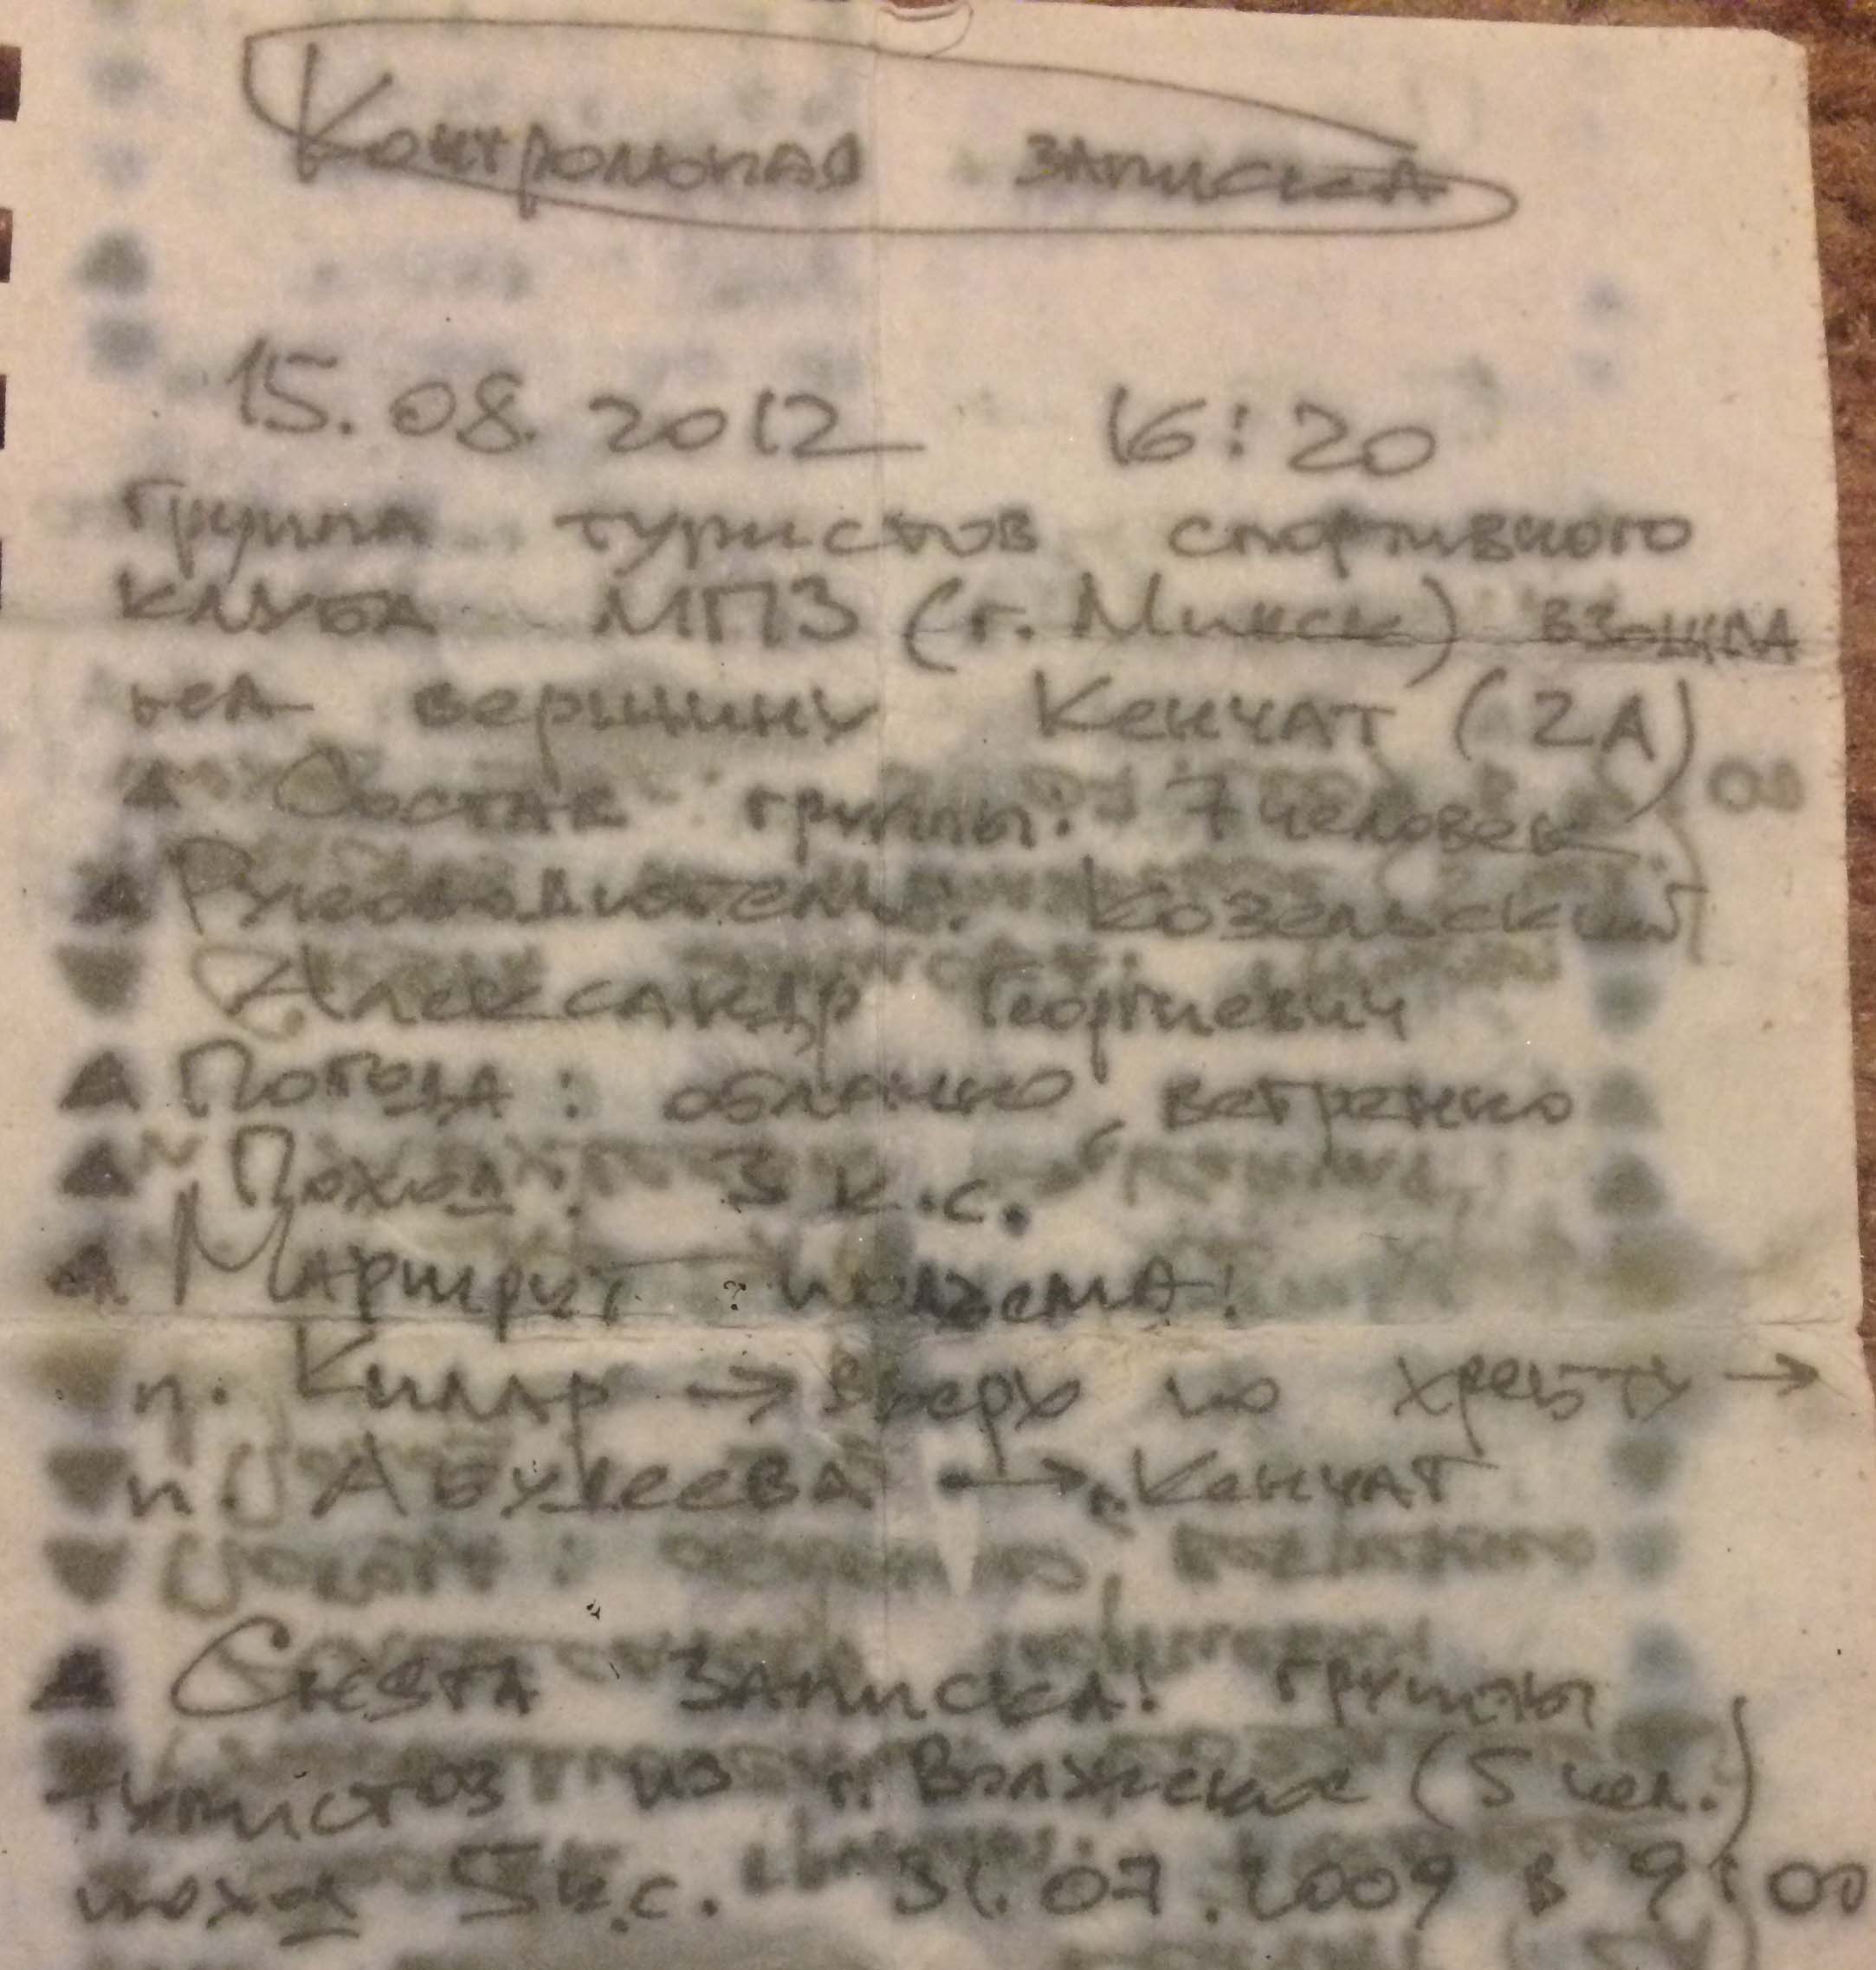 Контрольная записка
15.08.2012 16:20
группа туристов спортивного
клуба МПЗ (г. Минск) взошла
на вершину Кенчат (2А)
Состав группы: 7 человек
Руководитель: Козельский
Александр Георгиевич
Погода: облачно, ветренно
Поход: 3 к.с.
Маршрут подъема:
п. Килар → вверх по хребту →
п. Абукеева → Кенчат
Снята записка: группы
туристов из г. Волжский (5 чел.)
поход 5 к.с. 31.07.2009 в 9:00